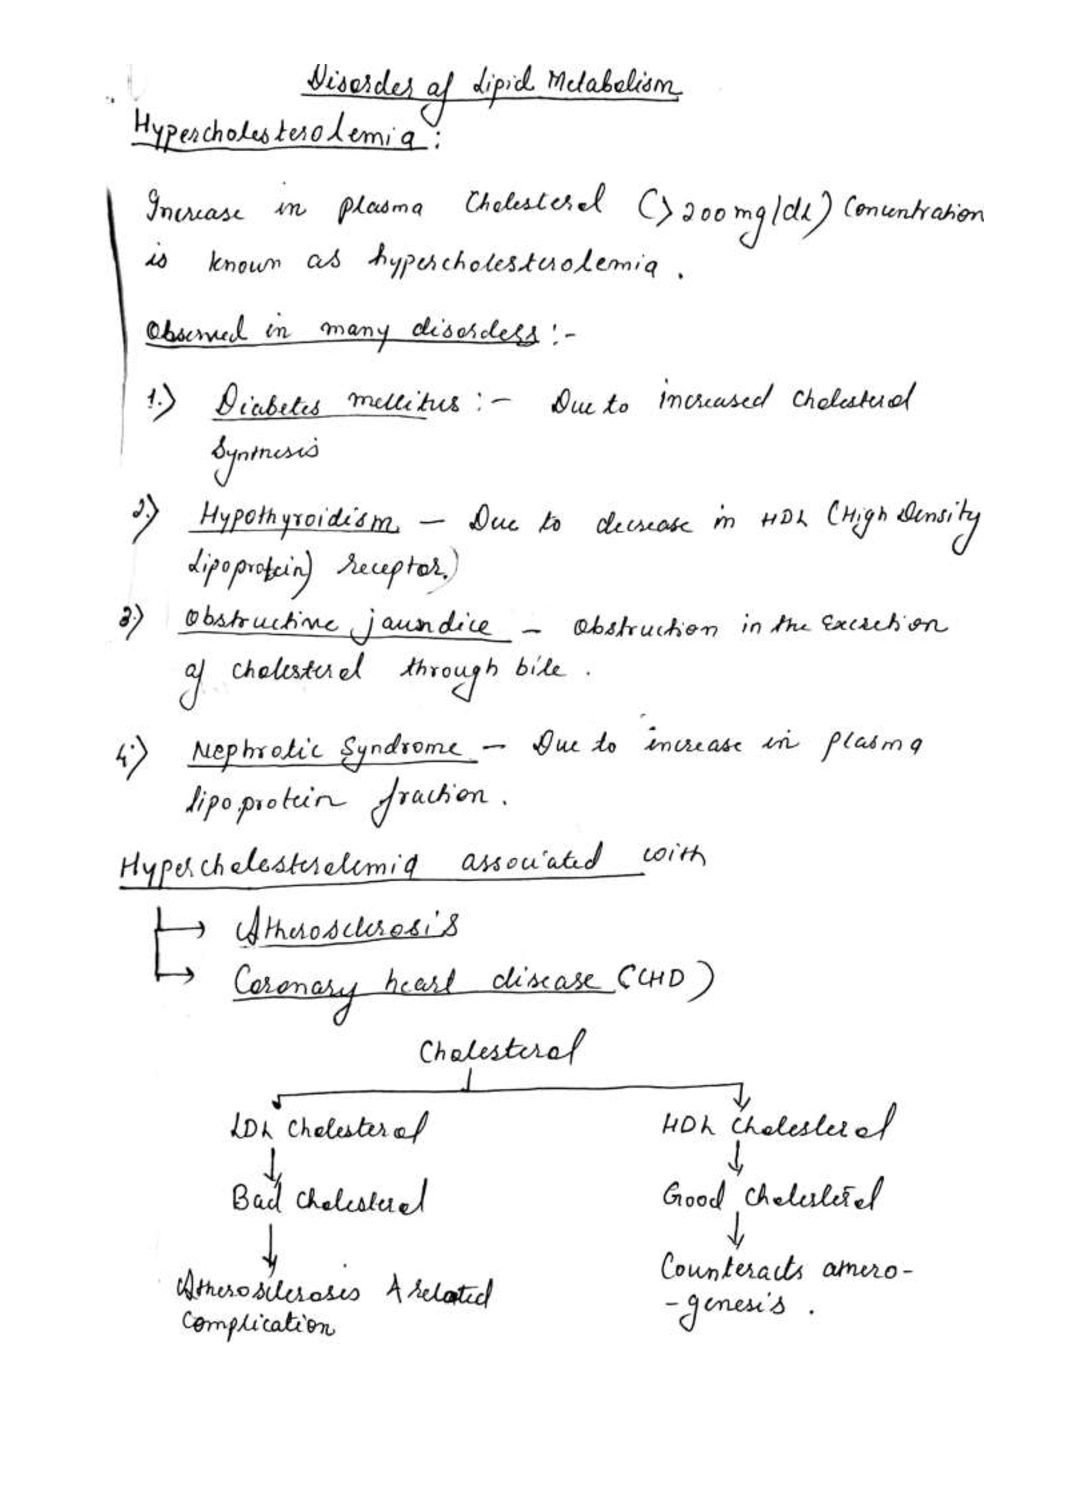 Disorder of Lipid Metabolism
Hypercholesterolemia :
Increase in plasma Cholesterol (>200mg/dL) Concentration
is known as hypercholesterolemia .
Observed in many disorders :-
1.) Diabetes mellitus :- Due to increased cholesterol
Synthesis
2.) Hypothyroidism - Due to decrease in HDL (High Density
Lipoprotein) receptor.)
3.) Obstructive jaundice - Obstruction in the Excretion
of cholesterol through bile .
4.) Nephrotic Syndrome - Due to increase in plasma
lipoprotein fraction .
Hypercholesterolemia associated with
→ Atherosclerosis
→ Coronary heart disease (CHD)
Cholesterol
LDL Cholesterol HDL Cholesterol
↓ ↓
Bad cholesterol Good cholesterol
↓ ↓
Atherosclerosis & related Counteracts athero-
Complication -genesis .